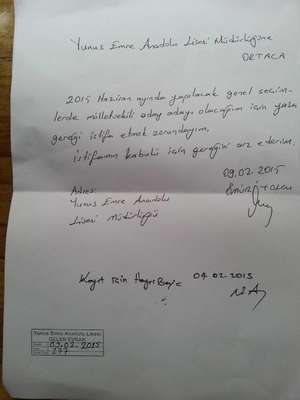 Yunus Emre Anadolu Lisesi Müdürlüğüne
ORTACA
2015 Haziran ayında yapılacak genel seçim-
lerde milletvekili aday adayı olacağım için yasa
gereği istifa etmek zorundayım.
İstifamın kabulü için gereğini arz ederim.
09.02.2015
Adres:
Yunus Emre Anadolu
Lisesi Müdürlüğü
Kayıt için
09.02.2015
Yunus Emre Anadolu Lisesi
GELEN EVRAK
09.02.2015
277